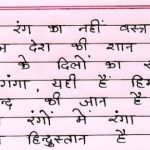 रंग का नहीं वस्त्र
देश की शान
के दिलों का स
गंगा, यही है हिम
न्द की जान है
रंगों में रंगा
हिन्दुस्तान है